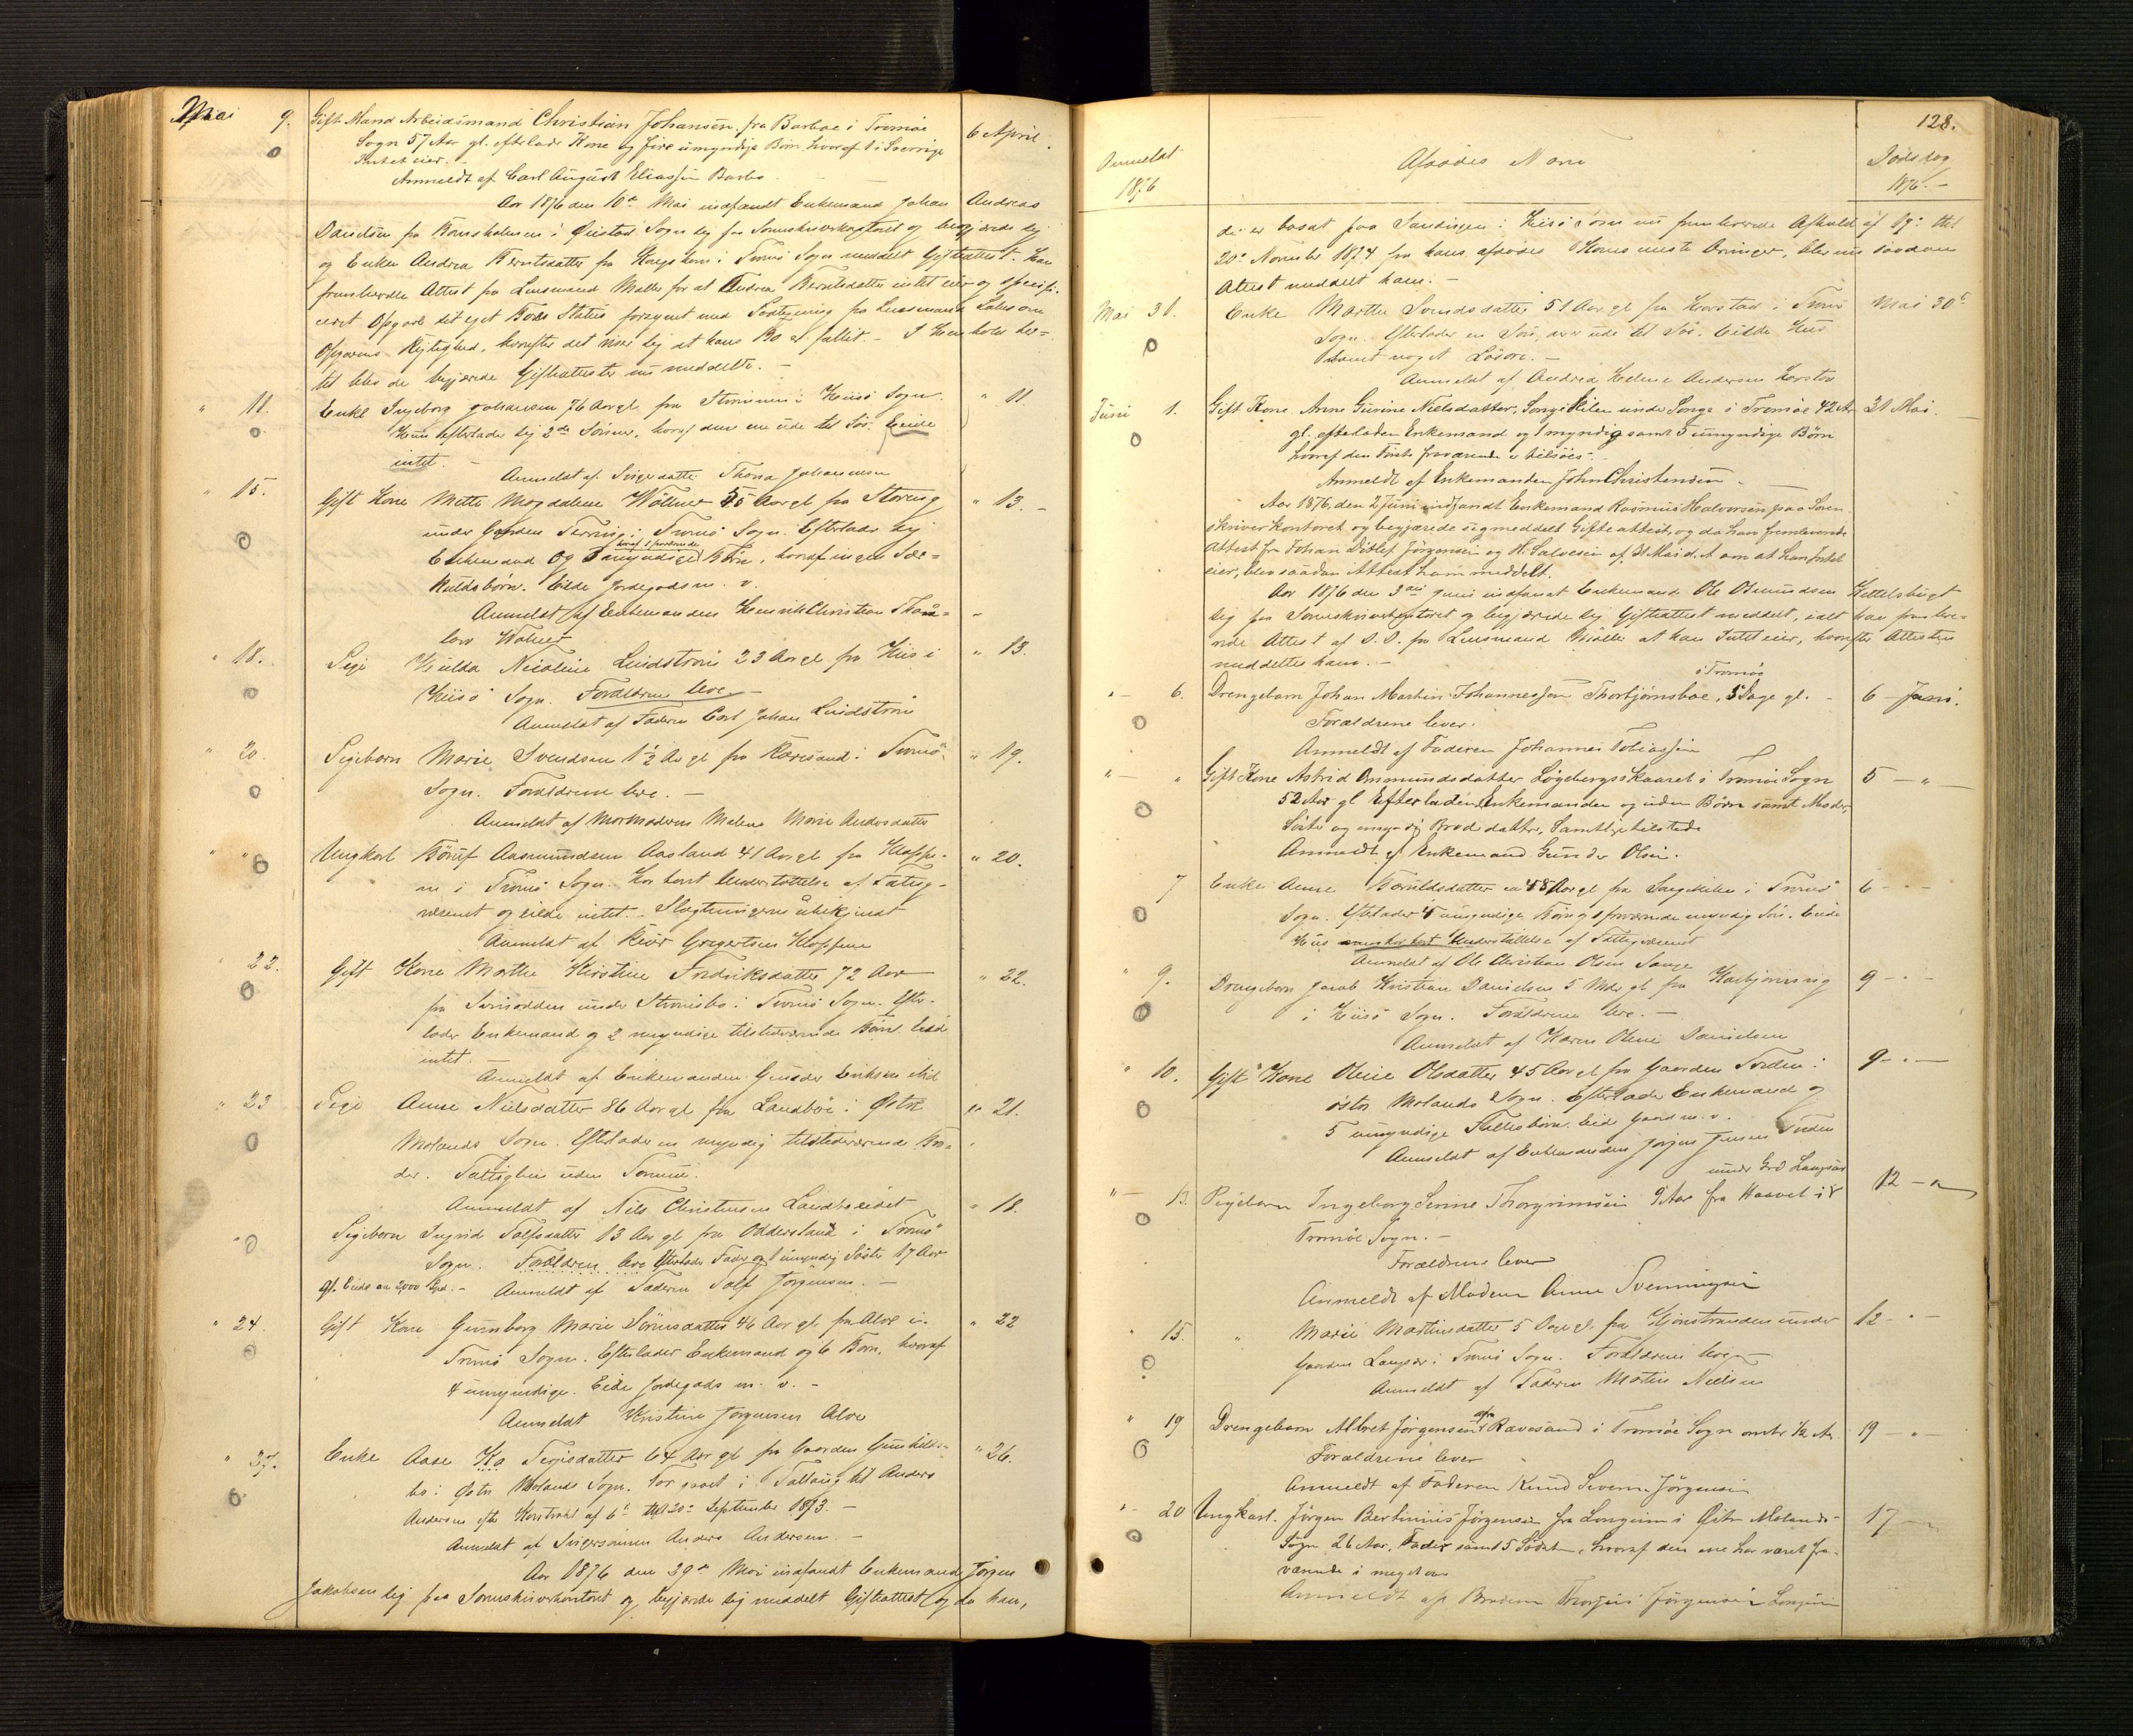 Mai 9. Gift Mand Arbeidsmand Christian Johansen fra Barboe i Tromøe 6 April.
Sogn 57 Aar gl. efterlader Kone og fire umyndige Børn, hvoraf 1 i Sverrige
Intet eier. -
Anmeldt af Carl August Eliassen Barbo
Aar 1876 den 10de Mai indfandt Enkemand Johan Andreas
Danielsen fra i Øiestad Sogn sig paa Sorenskriverkontoret og begjærede sig
og Enken Andrea Berntsdatter fra i Tromø Sogn meddelt Gifteattest. Han
fremlevede Attest fra Lensmand Møller for at Andrea Berntsdatter intet eier og specifi-
ceret Opgave det eget Boes Status forsynet med fra Lensmand om
Opgavens Rigtighed, hvorefter det viser sig at hans Bo er fallit. - I Henhold der-
til blev de begjærede Gifteattester nu meddelte. -
" 11. Enke Ingeborg Johansen 76 Aar gl. fra Strømmen i Hisø Sogn. " 11
Hun efterlader sig 2de Sønner, hvoraf den ene ude til Søs. Eiede
intet. -
Anmeldt af Svigerdatter Thora Johannesen
" 15. Gift Kone Mette Magdalene Wølner 45 Aar gl. fra " 13. -
under Gaarden i Tromø Sogn. Efterlader sig
hvoraf 1 fraværende
Enkemand og umyndige Børn, hvoraf ingen Sær-
kuldsbørn. Eiede Jordegods m. v.
Anmeldt af Enkemanden Henrik Christian
Wølner
" 18. Pige Hulda Nicoline Lindstrøm 23 Aar gl fra His i " 13.
Hisø Sogn. Forældrene leve -
Anmeldt af Faderen Carl Johan Lindstrøm
" 20. Pigebarn Marie Svendsen 1½ Aar gl fra Revesand i Tromø " 19.
Sogn. Forældrene leve. -
Anmeldt af Mormoderen Malene Marie Andersdatter
" " Ungkarl Aasmundsen Aasland 41 Aar gl fra Kloppe- " 20.
ne i Tromø Sogn. Har havt Understøttelse af Fattig-
væsenet og eiede intet. Slægtningerne ubekjendt
Anmeldt af Gregertsen Kloppene
" 22. Gift Kone Marthe Kirstine Fredriksdatter 72 Aar " 22.
fra under Strømsbo i Tromø Sogn. Efter-
lader Enkemand og 2 myndige tilstedeværende Børn. Eiede
intet. -
Anmeldt af Enkemanden Gunder Eriksen
" 23 Pige Anne Nielsdatter 86 Aar gl fra Landbøe i Østre " 21.
Molands Sogn. Efterlader en myndig tilstedeværende Bro-
der. Fattiglem uden Formue.
Anmeldt af Nils Christensen
" Pigebarn Ingrid Salfsdatter 13 Aar gl fra Oddersland i Tromø " 18.
Sogn. Forældrene leve Efterlader Fader og 1 umyndig Søster 17 Aar
gl. Eiede ca 2000 Spd. - Anmeldt af Faderen Salf Jørgensen. -
" 24. Gift Kone Gunnborg Marie Sørensdatter 46 Aar gl. fra Alve i " 22
Tromø Sogn. Efterlader Enkemand og 6 Børn, hvoraf
4 umyndige. Eide Jordegods m. v. -
Anmeldt Kristine Jørgensen Alve
" 27. Enke Aase Ka Terjesdatter 64 Aar gl fra Gaarden Gunhilds- " 26.
bo i Østre Molands Sogn. Var gaaet i Fællaug til Anders
Andersen efter Kontrakt af 6t til 20de September 1873. -
Anmeldt af Svigersønnen Anders Andersen. -
Aar 1876 den 29de Mai indfandt Enkemand Jørgen
Jakobsen sig paa Sorenskriverkontoret og begjærede sig meddelt Gifteattest og da han,
128.
Anmeldt 1876 Afdødes Navn Dødsdag 1876. -
der er bosat paa i Hisø Sogn nu fremleverede Afkald af 19de Okt
20de November 1874 fra hans afdøde Kones næste Arvinger, blev nu saadan
Attest meddelt ham. -
Mai 31. Enke Marthe Svendsdatter 51 Aar gl fra Harstad i Tromø Mai 30t
Sogn. Efterlader en Søn, der er ude til Søs. Eiede Hus
samt noget Løsøre. -
Anmeldt af Andrea Helene Andersen Harstad
Juni 1. Gift Kone Anne Gurine Nielsdatter, Songe Kilen under Songe i Tromøe 42 Ar 31 Mai.
gl. efterlader Enkemand og 1 myndig samt 5 umyndige Børn
hvoraf den første fraværende er tilsøes. -
Anmeldt af Enkemanden John Christensen -
Aar 1876, den 2 Juni indfandt Enkemand Rasmus Halvorsen paa Soren-
skriverkontoret og begjærede sig meddelt Gifteattest, og da han fremleverede
Attest fra Johan Ditlef Jørgensen og H. Salvesen af 31 Mai d. A om at han Intet
eier, blev saadan Attest ham meddelt.
Aar 1876 den 3die Juni indfandt Enkemand Ole Osmundsen Kettelsbugt
sig paa Sorenskriverkontoret og begjærede sig Gifteattest meddelt, idet han fremleve-
rede Attest af D. D. fra Lensmand Møller at han Intet eier, hvorefter Attesten
meddeltes ham. -
i Tromøe
" - 6. Drengebarn Johan Martin Johannessen Thorbjørnsboe, 5 Dage gl. - 6 - Juni.
Forældrene lever.
Anmeldt af Faderen Johannes Tobiassen
" - " Gift Kone Astrid Aanmundsdatter Løgebergsskaaret i Tromøe Sogn 5 - " -
52 Aar gl Efterlader Enkemanden og uden Børn samt Moder,
Søster og umyndig Broderdatter, samtlige tilstede
Anmeldt af Enkemand Gunder Olsen.
7 Enke Anne datter ca 48 Aar gl fra Songekilen i Tromø 6 - " -
Sogn. Efterlader 4 umyndige Børn og 1 fraværende myndig Søn. Eiede
Hus men har havt Understøttelse af Fattigvæsenet
Anmeldt af Ole Christian Olsen Songe
" 9. Drengebarn Jacob Kristian Danielsen 5 Mdr gl fra Kolbjørnsvig 9 - " -
i Hisø Sogn. Forældrene leve. -
Anmeldt af Karen Oline Danielsen
" 10. Gift Kone Oline Olsdatter 45 Aar gl fra Gaarden i 9 - " -
østre Molands Sogn. Efterlader Enkemand og
5 umyndige Fællesbørn. Eied Gaard m. v.
Anmeldt af Enkemanden Jørgen Jensen
under Grd Langsæ
" - 13. Pigebarn Ingeborg Serine Thorgrimsen 9 Aar fra Haavet i 12 - "
Tromøe Sogn. -
Forældrene lever
Anmeldt af Moderen Anne Svenningsen
" 15. " Marie Martinsdatter 5 Dage gl. fra under 12 - " -
Gaarden Langsæ i Tromø Sogn. Forældrene leve -
Anmeldt af Faderen Martin Nielsen
" 19 Drengebarn Albret Jørgensen afra Ravesand i Tromøe Sogn omtr ½ Ar. 19 - " -
Forældrene lever
Anmeldt af Faderen Knud Severin Jørgensen
" - 20 Ungkarl. Jørgen Bertinius Jørgensen fra Longum i Østre Molands- 17 - "
Sogn 26 Aar. Fader samt 5 Sødsk., hvoraf den ene har været fra-
værende i meget
Anmeldt af Broderen Jørgensen Longum